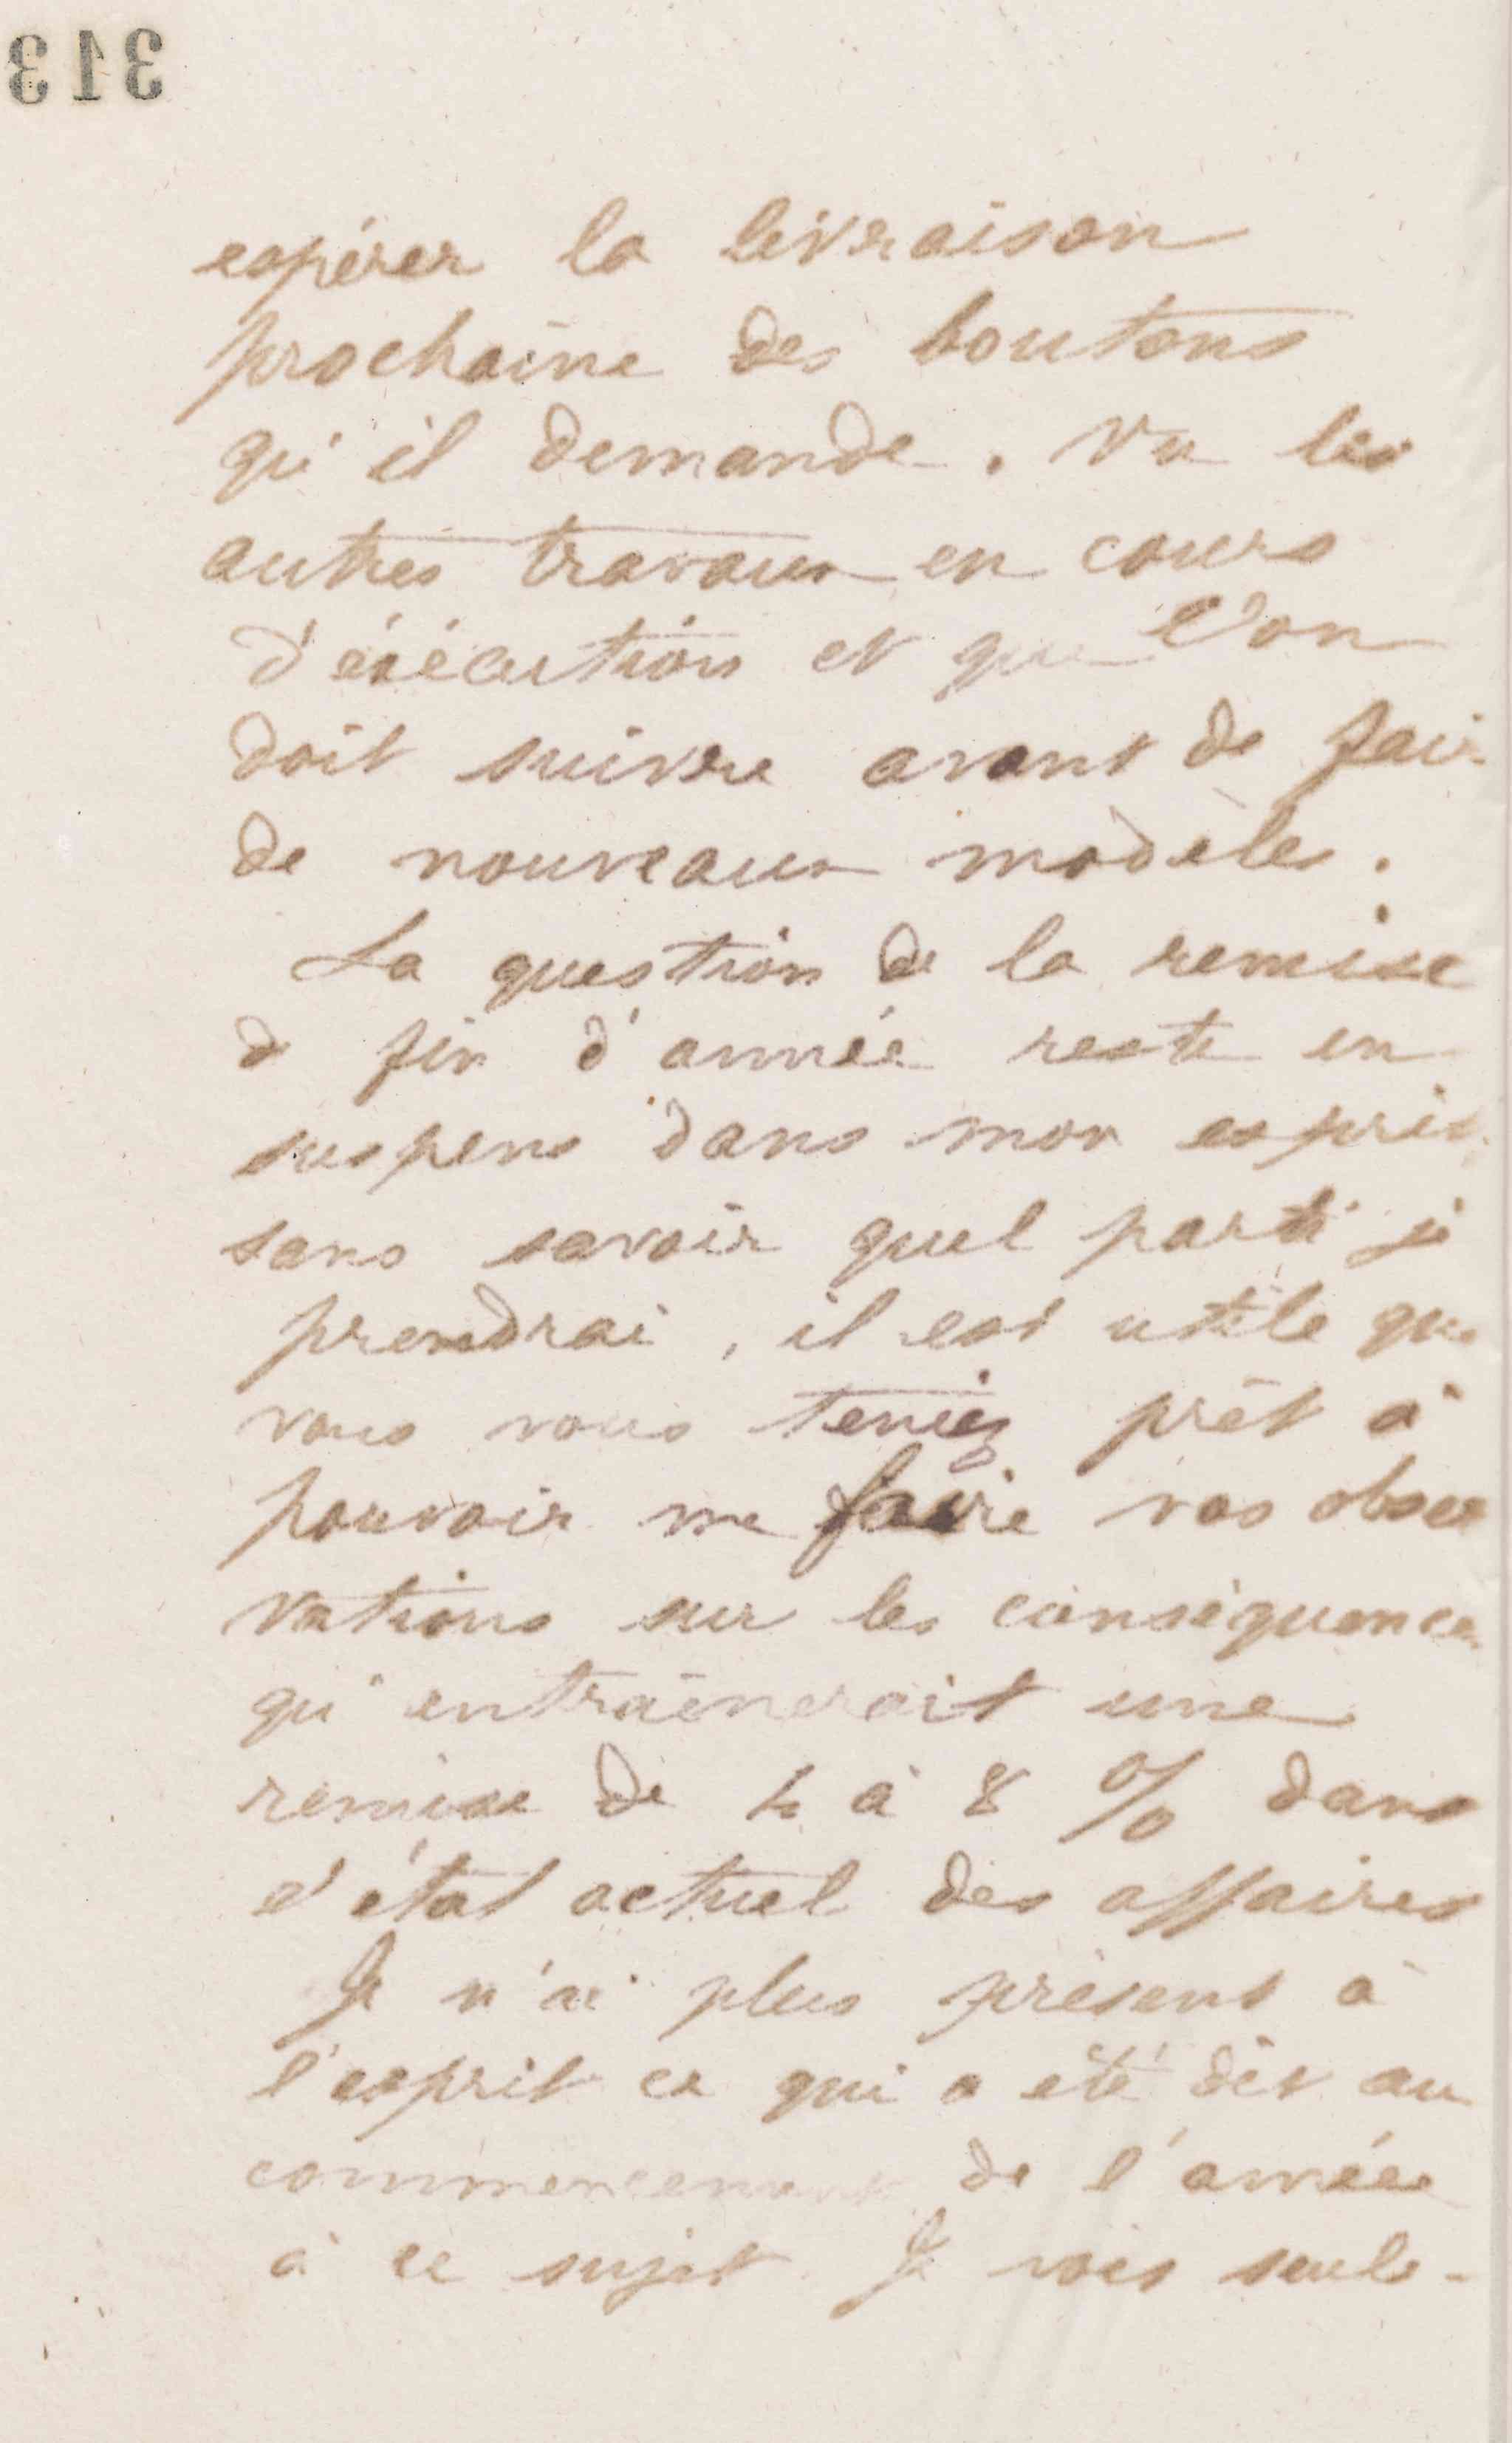 313
espérer la livraison
prochaine des boutons
qu'il demande. Vu les
autres travaux en cours
d'éxécution et que l'on
doit suivre avant de fair
de nouveaux modèles.
La question de la remise
de fin d'année reste en
suspens dans mon esprit
sans savoir quel parti je
prendrai, il est utile que
vous vous teniez prêt à
pouvoir me faire vos obser
vations sur les conséquences
qu'entraînerait une
remise de 4 à 8 % dans
l'état actuel des affaires
Je n'ai plus présent à
l'esprit ce qui a été dit au
commencement de l'année
à ce sujet. Je vois seule-